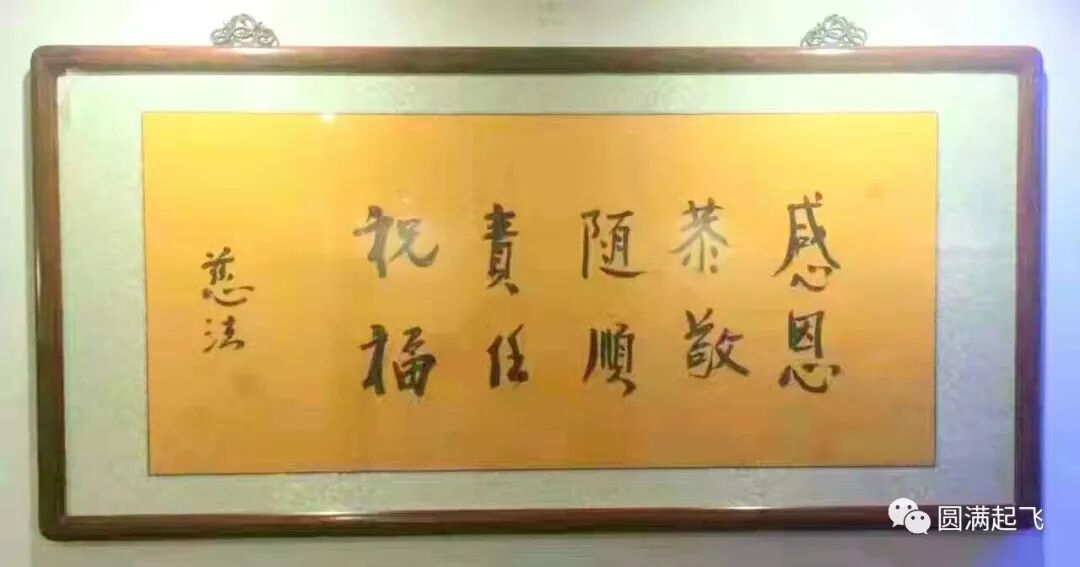 感恩
恭敬
随順
責任
祝福
慈法
圆满起飞